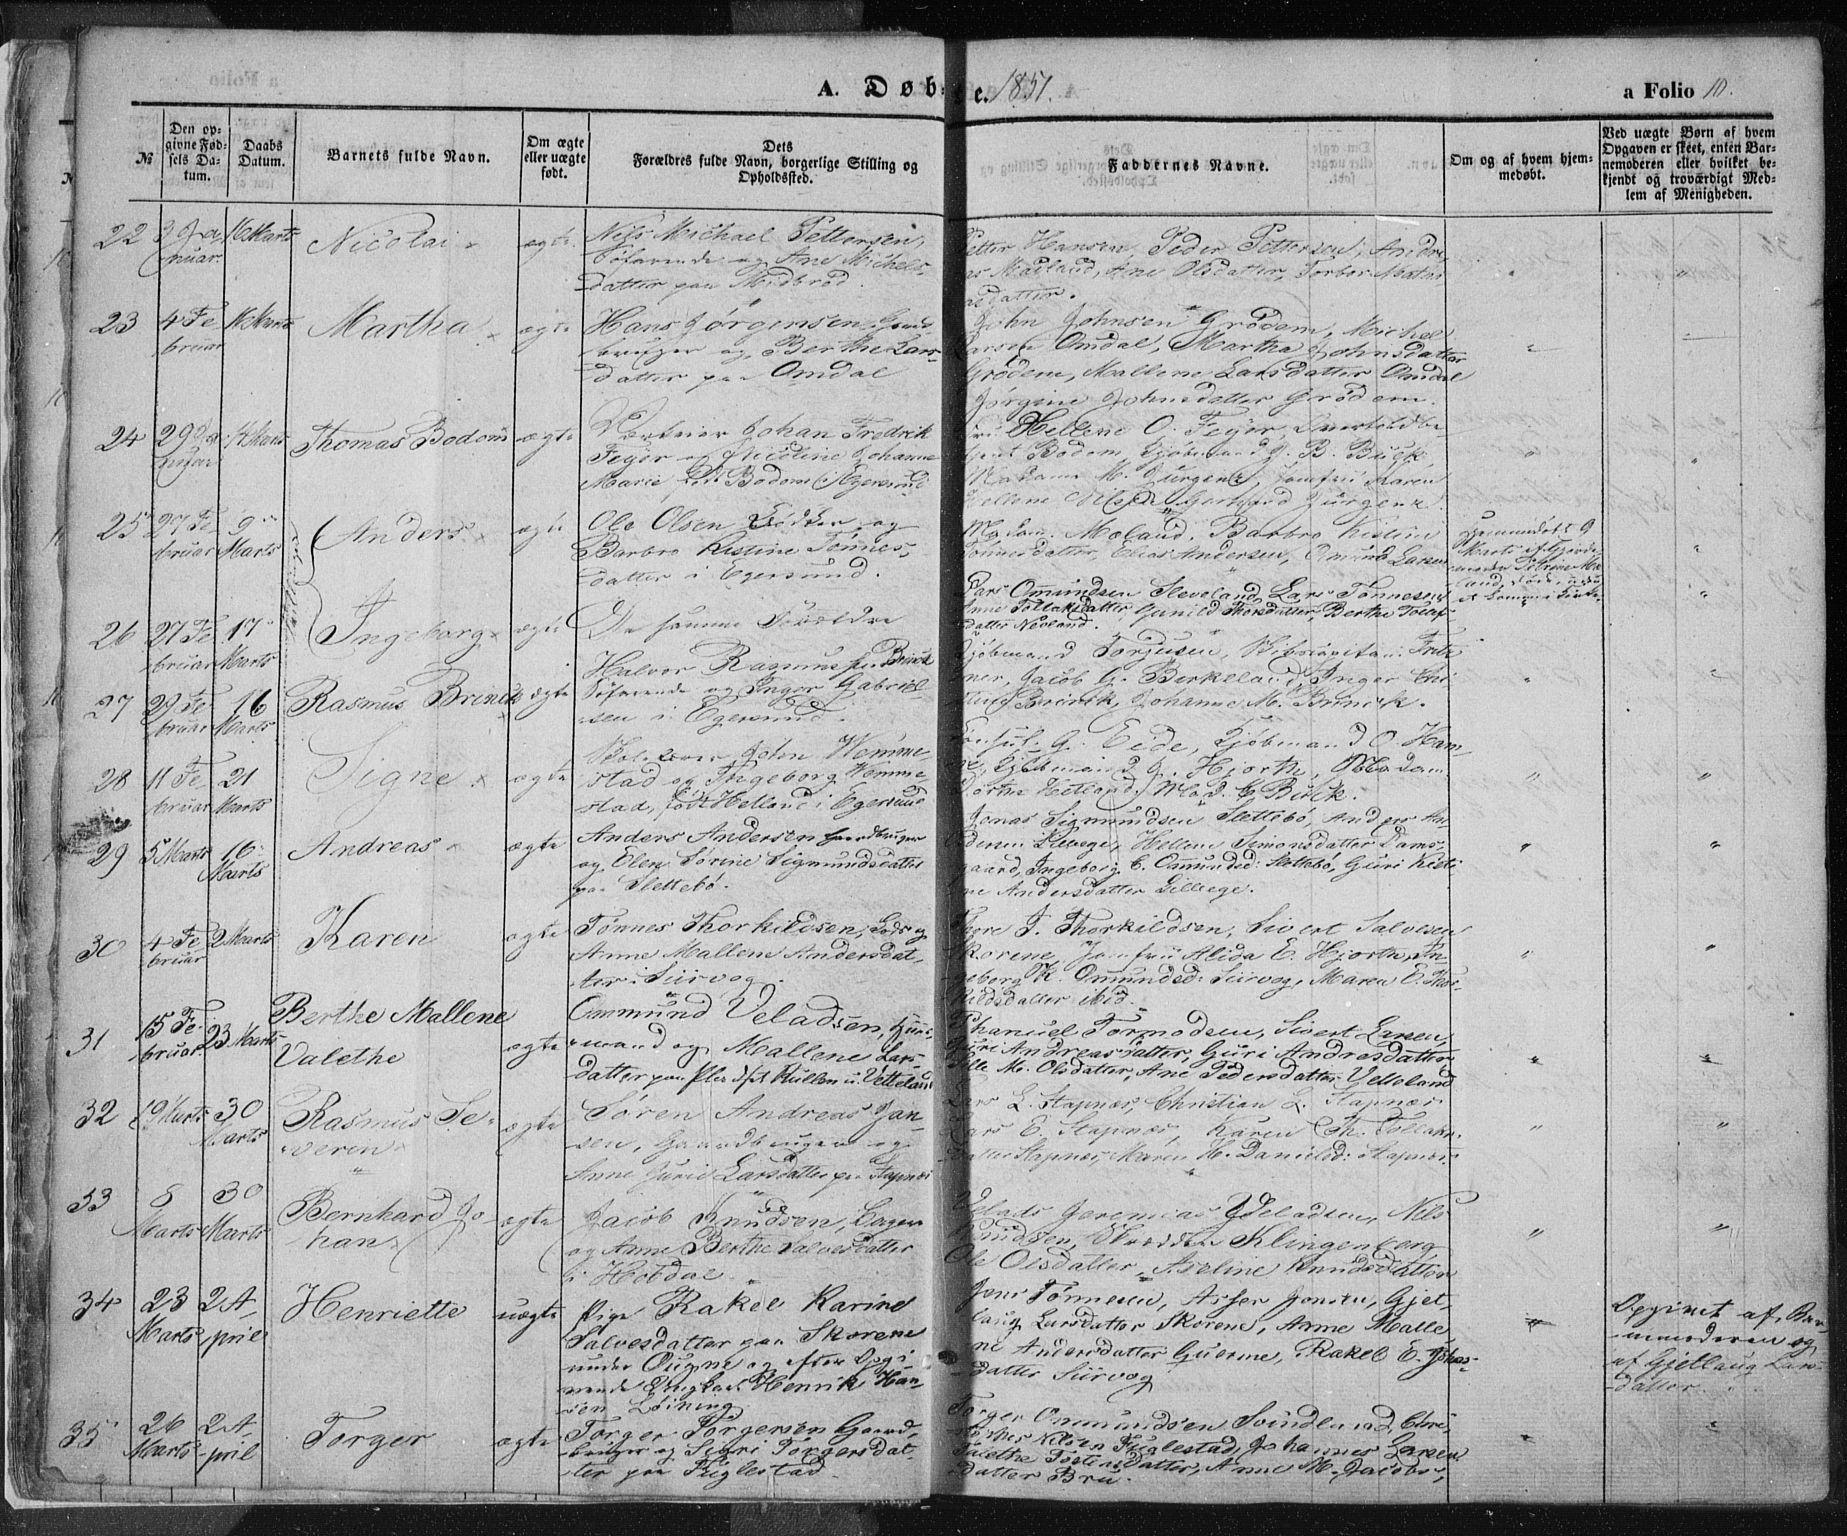 A. Døb- e. 1851.
a Folio 10.
№
Den op-
givne Fød-
sels Da-
tum.
Daabs
Datum.
Barnets fulde Navn.
Om ægte
eller uægte
født.
Dets
Forældres fulde Navn, borgerlige Stilling og
Opholdssted.
Faddernes Navne.
Om og af hvem hjem-
medøbt.
Ved uægte Børn af hvem
Opgaven er skeet, enten Bar-
nemoderen eller hvilket be-
kjendt og troværdigt Med-
lem af Menigheden.
22 3 Ja- 16 Marts Nicolai ægte Nils Michael Pettersen,
nuar.
Søfarende og Ane Michels-
datter paa Midbrød.
Petter Hansen, Peder Pettersen, Andre-
as Maaland, Ane Olsdatter, Torbor Mathi-
asdatter.
23 4 Fe- 16 Marts Martha ægte Hans Jørgensen, Gaard-
bruar
bruger og Berthe Lars-
datter paa Omdal
John Johnsen Grødem, Michel
Larsen Omdal, Martha Johnsdatter
Grødem, Mallene Larsdatter Omdal
Jørgine Johnsdatter Grødem.
24 29 Ja- Marts Thomas Bodom ægte Johan Fredrik
nuar
Feyer og Nicoline Johanne
Marie, født Bodom i Egersund
Hellene O. Feyer,
Bodom, Kjøbmand J. B. Buck,
Madame M. Jurgens, Jomfru Karen
Hellene Nilsen, Gertrud Jürgens.
25 27 Fe- 9 Anders ægte Ole Olsen Bødker og
bruar Marts
Tvillinger
Barbro Kistine Tønnes-
datter i Egersund.
Madam Moland, Barbro Kistine
Tønnesdatter, Elias Andersen, Omund Larsen
Hjemmedøbt 9
Marts af Gjorde-
moder
26 27 Fe- 17 Ingeborg ægte De samme Forældre
bruar Marts
Lars Ommundsen Sleveland, Lars Tønnesen,
Anne Tollaksdatter, Gunild Thorsdatter, Berthe Tollaks-
datter Nevland.
27 29 Fe- 16 Rasmus Brinck ægte Halvor Rasmussen Brinck
bruar Marts
Søfarende og Inger Gabriel-
sen i Egersund.
Kjøbmand Torjusen, Skibscapitain Fritz
Jacob G. Berkeland, Inger Chri-
stine Brinck, Johanne M. Brinck.
28 11 Fe- 21 Signe ægte John Wemme-
bruar Marts
stad og Ingeborg Wemme-
stad, født Hetland i Egersund
Consul G. Eide, Kjøbmand O. Ham-
re, Kjøbmand J. Hjorth, Madam
Dorthe Hetland, Mad. C Buck.
29 5 Marts 16 Andreas ægte Anders Andersen Gaardbruger
Marts
og Elen Sørine Sigmundsdatter
paa Slettebø.
Jonas Sigmundsen Slettebø, Anders An-
dersen Lillvege, Hellene Simonsdatter Dams-
gaard, Ingeborg E. Ommundsd: Slettebø, Guri Kisti-
ne Andersdatter Lillvege.
30 4 Fe- 2 Marts Karen ægte Tønnes Thorkildsen, Lods og
bruar
Anne Mallene Andersdat-
ter i Siirvog.
Thore J. Thorkildsen, Sivert Salvesen
Skorene, Jomfru Alida E. Hjorth, In-
geborg K. Omundsd: Siirvog, Maren E. Thor-
kildsdatter ibid.
31 15 Fe- 23 Marts Berthe Mallene ægte Ommund Veladsen, Huus-
bruar
Valethe
mand og Mallene Lars-
datter paa Pladset Kullen u. Vetteland
Thanuel Tormodsen, Sivert Ersen,
Guri Andreasdatter, Guri Andresdatter
M. Olsdatter, Ane Pedersdatter Vetteland
32 19 Marts 30 Rasmus Se- ægte Søren Andreas Jan-
Marts
veren
sen, Gaardbruger og
Anne Gurie Larsdatter paa Stapnæs
Lars L. Stapnæs, Christian L. Stapnæs
Lars E. Stapnæs, Karen Th. Tollaks-
datter Stapnæs, Maren H. Danielsd: Stapnæs
33 8 30 Bernhard Jo- ægte Jacob Knudsen,
Marts Marts
han
og Anne Berthe Salvesdatter
i Hobdal
Velads Jeremias Veladsen, Nils
Knudsen, Klingenberg
Ole Olsdatter, Aseline Knudsdatter
34 23 2 A- Henriette uægte Pige Rakel Karine
Marts pril
Salvesdatter paa Skorene
under Ougne og efter Opgi-
vende Ungkarl Henrik Han-
sen Leining
Jens Tønnesen, Asser Jonsen, Gjet-
laug Larsdatter Skorene, Anne Malle-
ne Andersdatter Guerme, Rakel E. Johas-
datter Siirvog
Opgivet af Bar-
nemoderen og
af Gjetlaug Lars-
datter.
35 26 2 A- Torger ægte Torger Torgersen Gaard-
Marts pril
bruger og Siri Torgersdat-
ter paa Fuglestad
Torger Ommundsen Svindland, Chri-
stopher Nilsen Fuglestad, Johannes Larsen
Valethe Tostensdatter, Anne M. Jacobs-
datter Bru.